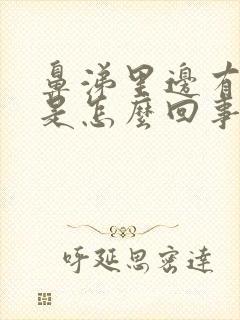 鼻涕里邊有
是怎麼回事
呼延思密達